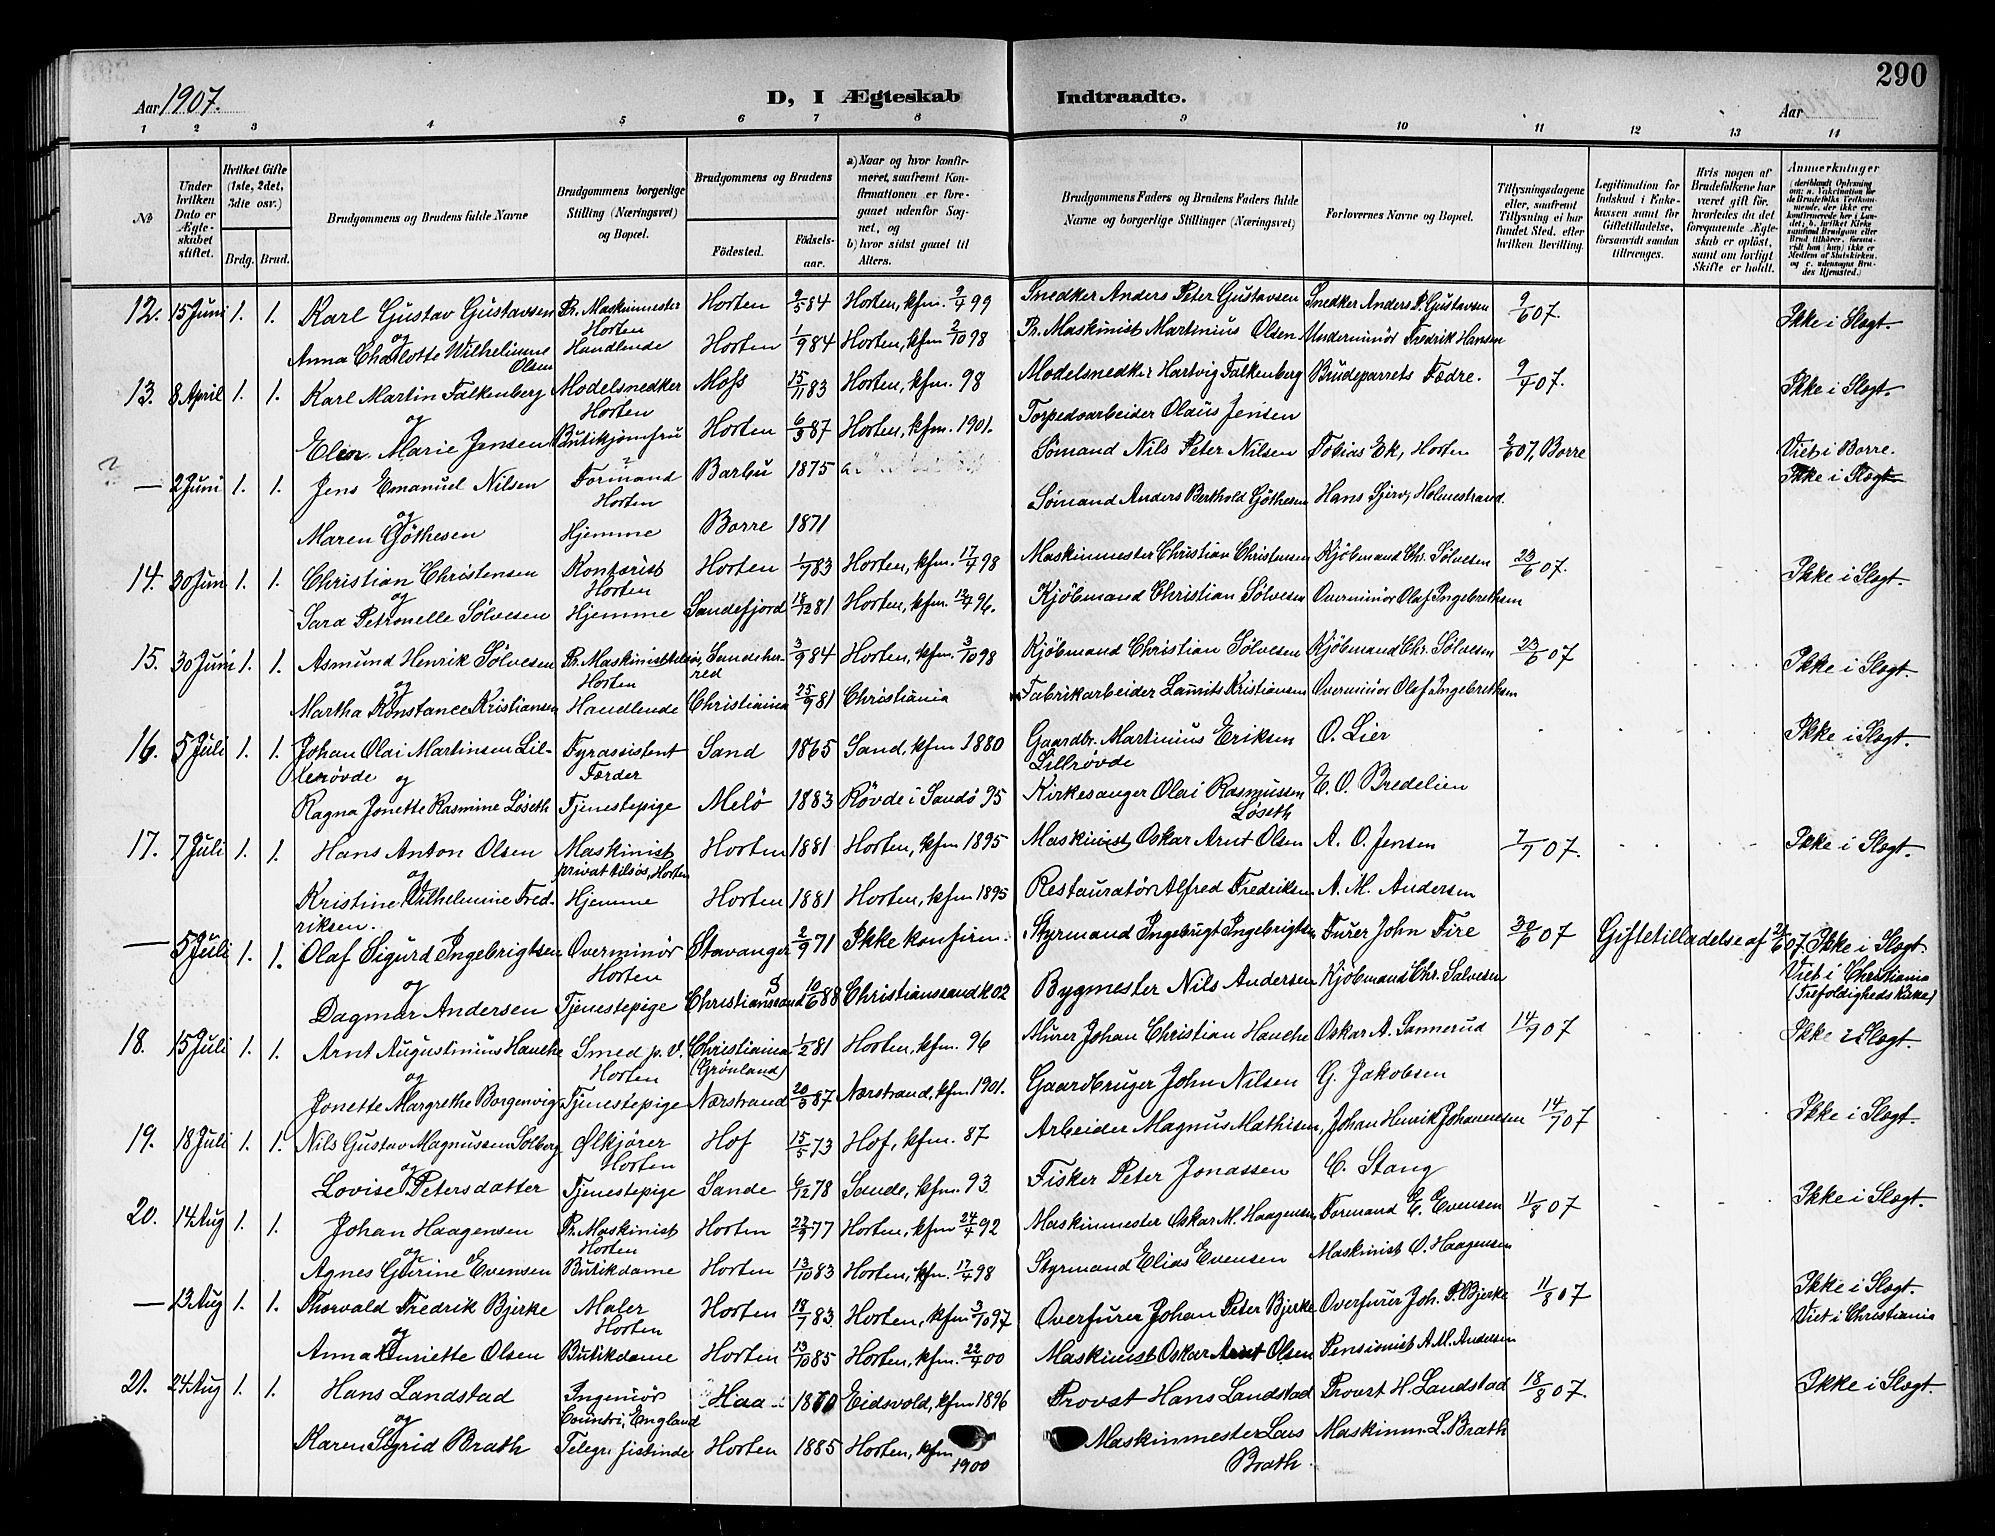 290
Aar 1907.
D, I Ægteskab Indtraadte.
Aar
1 2 3 4 5 6 7 8 9 10 11 12 13 14
№
Under hvilken Dato er Ægteskabet stiftet.
Hvilket Gifte (1ste, 2det, 3die osv.)
Brdg. Brud.
Brudgommens og Brudens fulde Navne
Brudgommens borgerlige Stilling (Næringsvei) og Bopæl.
Brudgommens og Brudens
Fødested.
Fødselsaar.
a) Naar og hvor konfirmeret, saafremt Konfirmationen er foregaaet udenfor Sognet, og
b) hvor sidst gaaet til Alters.
Brudgommens Faders og Brudens Faders fulde Navne og borgerlige Stillinger (Næringsvei)
Forlovernes Navne og Bopæl.
Tillysningsdagene eller, saafremt Tillysning ei har fundet Sted, efter hvilken Bevilling.
Legitimation for Indskud i Enkekassen samt for Giftetilladelse, forsaavidt saadan tiltrænges.
Hvis nogen af Brudefolkene har været gift før, hvorledes da det foregaaende Ægteskab er opløst, samt om lovligt Skifte er holdt.
Anmerkninger
12. 15 Juni 1. 1. Karl Gustav Gustavsen Pr. Maskinmester Horten Horten 9/5 84 Horten, kfm. 9/4 99 Snedker Anders Peter Gustavsen Snedker Anders P. Gustavsen 9/6 07. Ikke i Slægt.
og
Anna Charlotte Wilhelmine Olsen Handlende Horten 1/9 84 Horten, kfm. 2/10 98 Pr. Maskinist Martinius Olsen Underminör Fredrik Hansen
13. 8 April 1. 1. Karl Martin Falkenberg Modelsnedker Horten Moss 15/11 83 Horten, kfm. 98 Modelsnedker Hartvig Falkenberg Brudeparrets Fædre. 9/4 07. Ikke i Slægt.
og
Elen Marie Jensen Butikjomfru Horten 6/3 87 Horten, kfm. 1901. Torpedoarbeider Olaus Jensen
— 2 Juni 1. 1. Jens Emanuel Nilsen Formand Horten Barbu 1875 a. Sømand Nils Peter Nilsen Tobias Ek, Horten 2/6 07, Borre Viet i Borre. Ikke i Slægt
og
Maren Göthesen Hjemme Borre 1871 Sømand Anders Berthold Göthesen Hans Gjerv, Holmestrand
14. 30 Juni 1. 1. Christian Christensen Kontorist Horten Horten 1/9 83 Horten, kfm. 17/4 98 Maskinmester Christian Christensen Kjöbmand Chr. Sølvesen 23/6 07. Ikke i Slægt.
og
Sara Petronelle Sølvesen Hjemme Sandefjord 18/12 81 Horten, kfm. 12/4 96. Kjöbmand Christian Sølvesen Overminör Olaf Ingebrethsen
15. 30 Juni 1. 1. Asmund Henrik Sølvesen Pr. Maskinist Horten Sandeherred 3/9 84 Horten, kfm. 3/10 98 Kjöbmand Christian Sølvesen Kjöbmand Chr. Sølvesen 23/6 07 Ikke i Slægt.
og
Martha Konstance Kristiansen Handlende Christiania 25/9 81 Christiania Fabrikarbeider Laurits Kristiansen Overminör Olaf Ingebrethsen
16. 5 Juli 1. 1. Johan Olai Martinsen Lillerövde Fyrassistent Færder Sand 1865 Sand, kfm 1880 Gaardbr. Martinius Eriksen Lillrövde O. Lier Ikke i Slægt.
og
Ragna Jonette Rasmine Løseth Tjenestepige Melö 1883 Rövde i Sandö 95 Kirkesanger Olai Rasmussen Løseth E. O. Bredelien
17. 7 Juli 1. 1. Hans Anton Olsen Maskinist privat tilsös, Horten Horten 1881 Horten, kfm 1895 Maskinist Oskar Arnt Olsen A. O. Jensen 7/7 07. Ikke i Slægt.
og
Kristine Vilhelmine Fredriksen. Hjemme Horten 1881 Horten, kfm 1895 Restauratör Alfred Fredriksen A. M. Andersen
— 5 Juli 1. 1. Olaf Sigurd Ingebrigtsen Overminör Horten Stavanger 2/9 71 Ikke konfirm. Styrmand Ingebrigt Ingebrigtsen Furer John Fire 30/6 07 Giftetilladelse af 22/6 07. Ikke i Slægt. Viet i Christiania (Trefoldigheds Kirke)
og
Dagmar Andersen Tjenestepige Christianssand 10/6 88 Christianssand k 02 Bygmester Nils Andersen Kjöbmand Chr. Salvesen
18. 15 Juli 1. 1. Arnt Augustinius Hauche Smed p. V. Horten Christiania (Grönland) 1/2 81 Horten, kfm. 96 Murer Johan Christian Hauche Oskar A. Sannerud 14/9 07 Ikke i Slægt.
og
Jonette Margrethe Borgenvig Tjenestepige Nærstrand 20/3 87 Nærstrand, kfm. 1901. Gaardbruger John Nilsen G. Jakobsen
19. 18 Juli 1. 1. Nils Gustav Magnussen Solberg Ølkjörer Horten Hof 15/5 73 Hof, kfm. 87 Arbeider Magnus Mathisen, Johan Henrik Johannesen 14/7 07 Ikke i Slægt.
og
Lovise Petersdatter Tjenestepige Sande 6/12 78 Sande, kfm. 93 Fisker Peter Jonassen C. Stang
20. 14 Aug 1. 1. Johan Haagensen Pr. Maskinist Horten Horten 22/9 77 Horten, kfm 24/4 92 Maskinmester Oskar M. Haagensen Formand E. Evensen 11/8 07 Ikke i Slægt.
og
Agnes Gurine Evensen Butikdame Horten 13/10 83 Horten, kfm. 17/4 98 Styrmand Elias Evensen Maskinist O. Haagensen
— 13 Aug 1. 1. Thorvald Fredrik Bjerke Maler Horten Horten 18/7 83. Horten, kfm 3/10 97 Overfurer Johan Peter Bjerke Overfurer Joh. P. Bjerke 11/8 07 Ikke i Slægt. Viet i Christiania
og
Anna Henriette Olsen Butikdame Horten 13/10 85 Horten, kfm. 22/4 00 Maskinist Oskar Arnt Olsen Pensionist A. M. Andersen
21. 24 Aug 1. 1. Hans Landstad Ingeniör Coventri, England 1880 Eidsvold, kfm 1896 Provst Hans Landstad Provst H. Landstad 18/8 07. Ikke i Slægt.
og
Karen Sigrid Brath Telegr. fistinde Horten 1885 Horten, kfm 1900 Maskinmester Lars Brath Maskinm. L. Brath